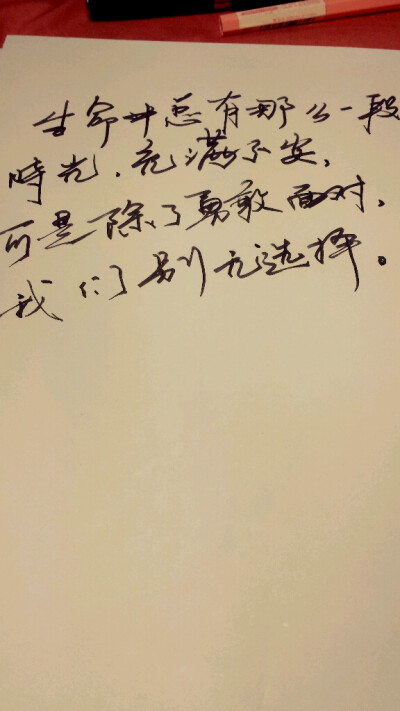 生命中总有那么一段
時光，充满不安，
可是除了勇敢面对，
我们别无选择。